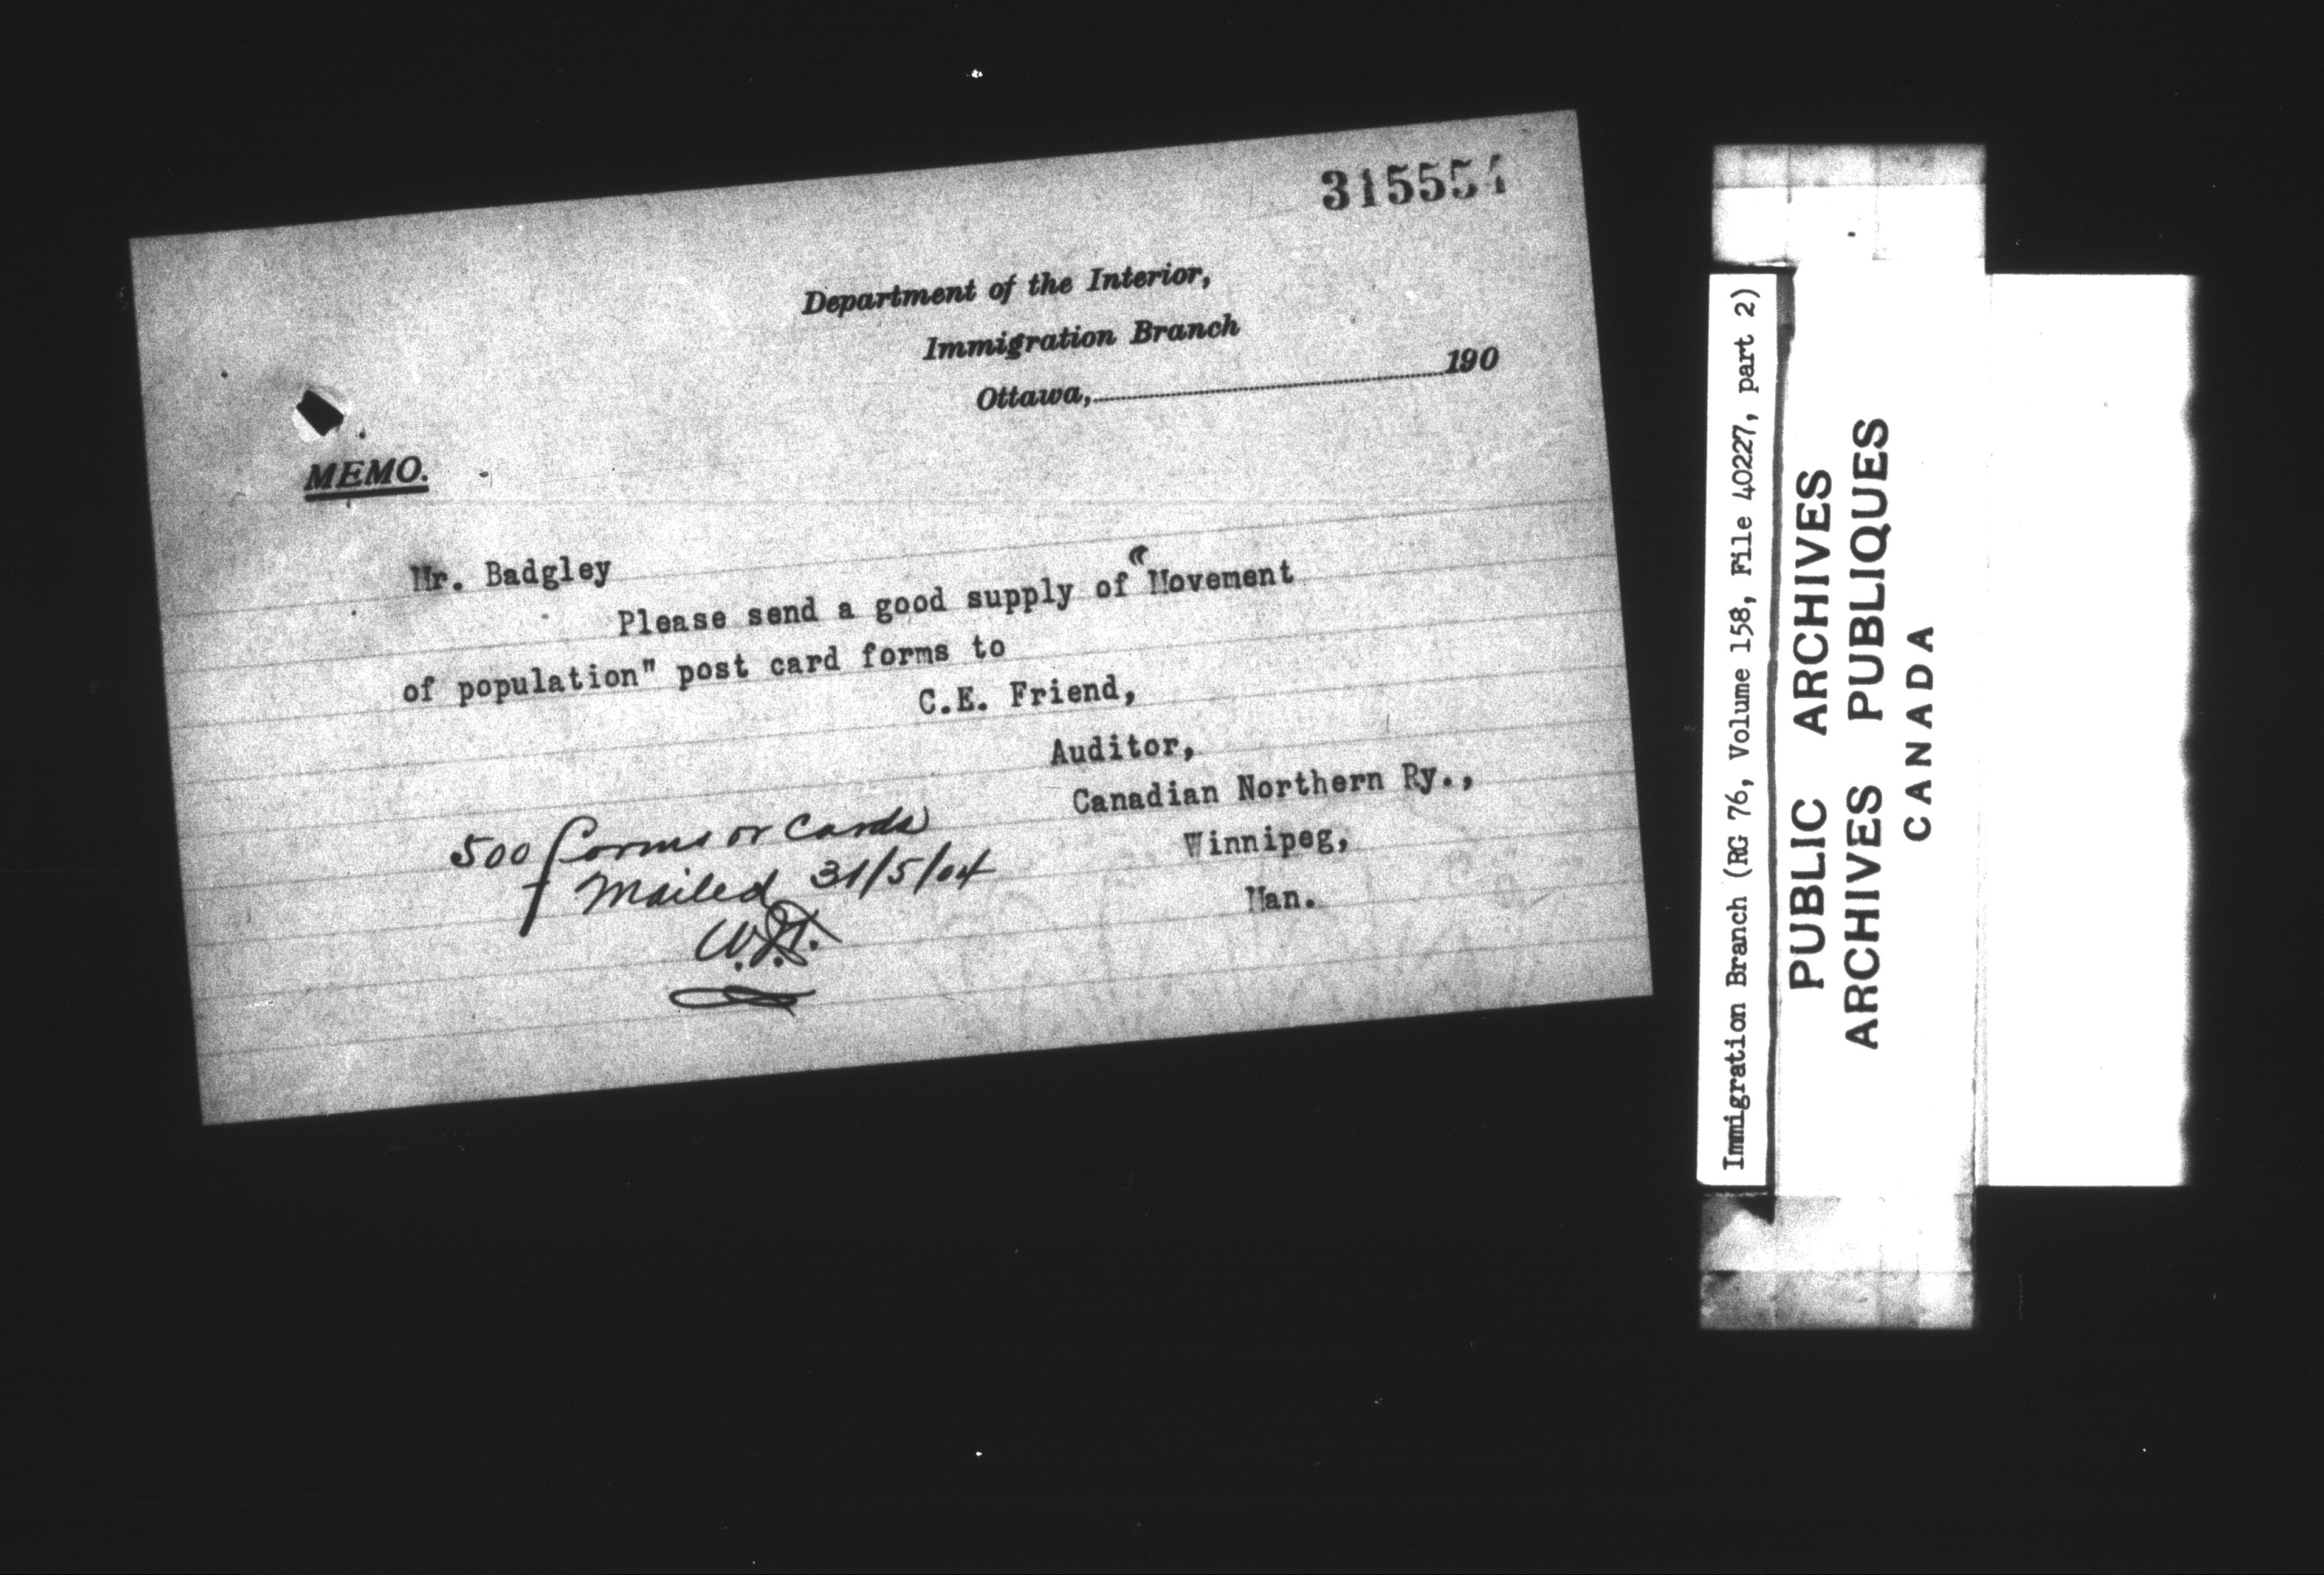 315554
Department of the Interior,
Immigration Branch
Ottawa,..............................190
MEMO.
Mr. Badgley
Please send a good supply of "Movement
of population" post card forms to
C.E. Friend,
Auditor,
Canadian Northern Ry.,
Winnipeg,
Man.
500 forms or cards
mailed 31/5/04
Immigration Branch (RG 76, Volume 158, File 40227, part 2)
PUBLIC ARCHIVES
ARCHIVES PUBLIQUES
CANADA